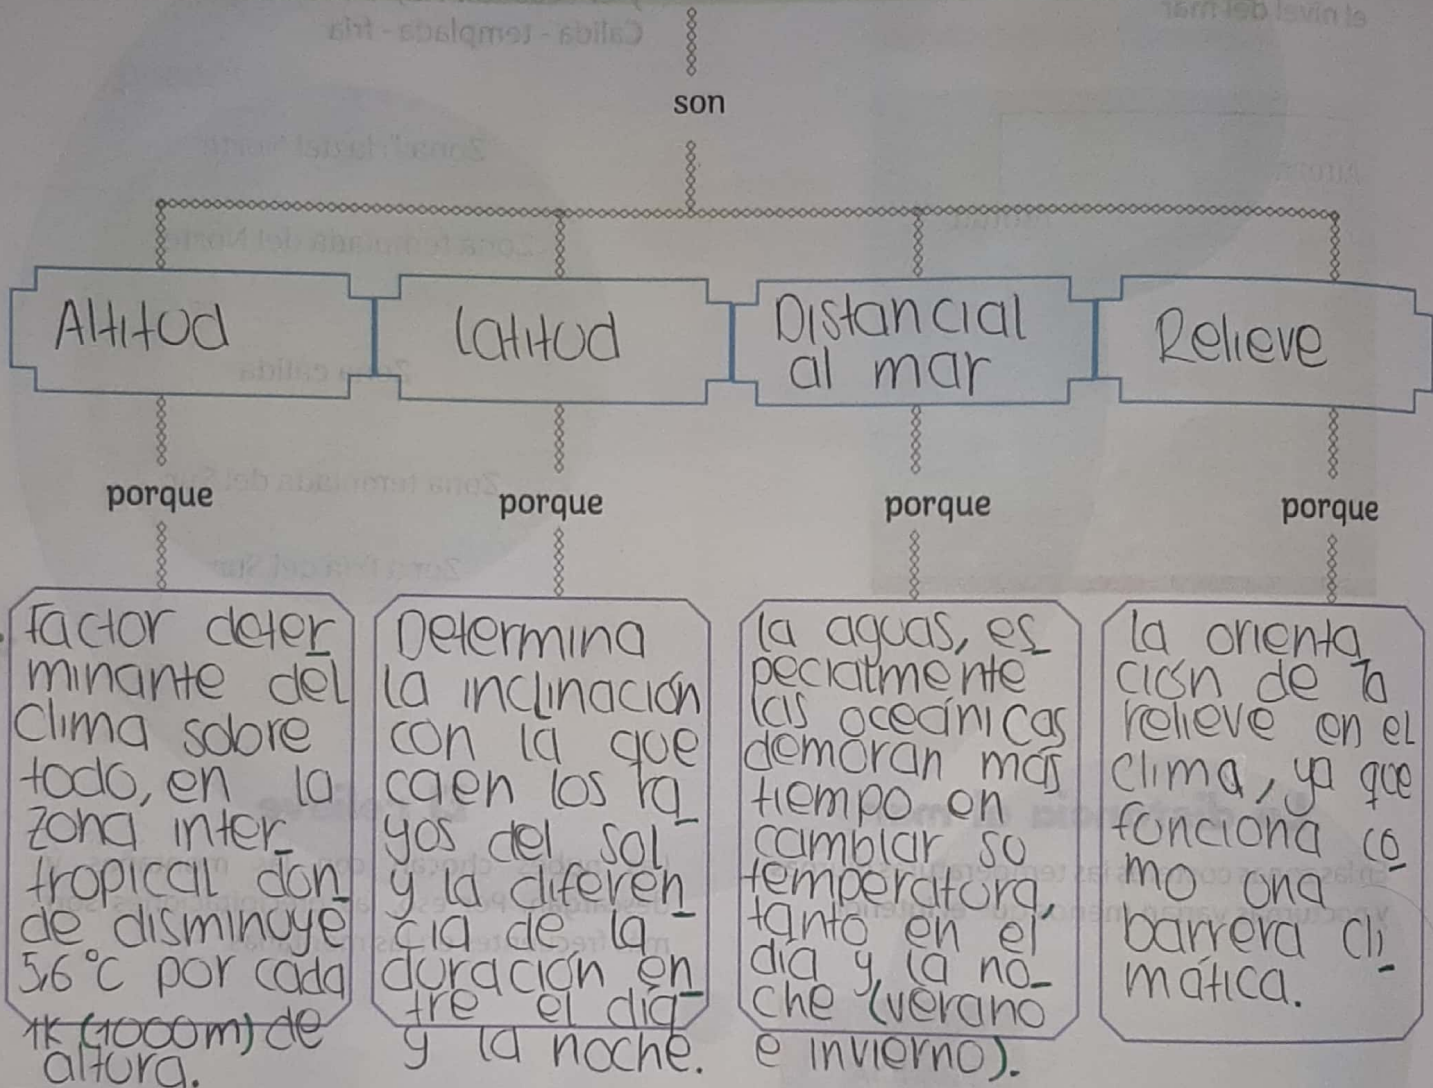 son
Altitud
Latitud
Distancial
al mar
Relieve
porque
porque
porque
porque
Factor deter
minante del
clima sobre
todo, en la
zona inter_
tropical don_
de disminuye
5,6°C por cada
1k (1000m) de
altura.
Determina
la inclinación
con la que
caen los ra_
yos del sol
y la diferen_
cia de la
duración en_
tre el día
y la noche.
la aguas, es_
pecialmente
las oceánicas
demoran más
tiempo en
cambiar su
temperatura,
tanto en el
día y la no_
che (verano
e invierno).
la orienta
ción de la
relieve en el
clima, ya que
funciona co_
mo una
barrera cli_
mática.